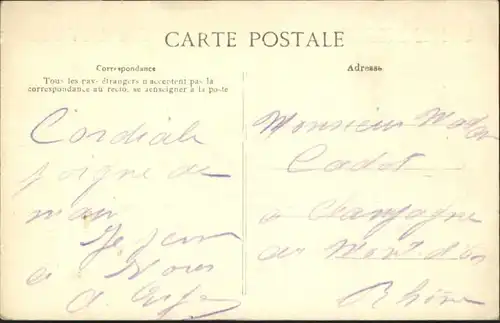 CARTE POSTALE
Correspondance
Tous les pays étrangers n'acceptent pas la
correspondance au recto, se renseigner à la poste
Adresse
Cordiale
poigne de
main
à Vous
Monsieur
Cadot
à Champagne
au Mont d'Or
Rhône